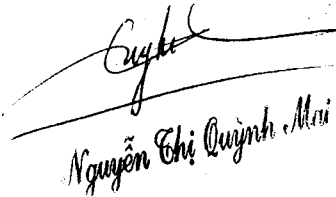 Nguyễn Thị Quỳnh Mai